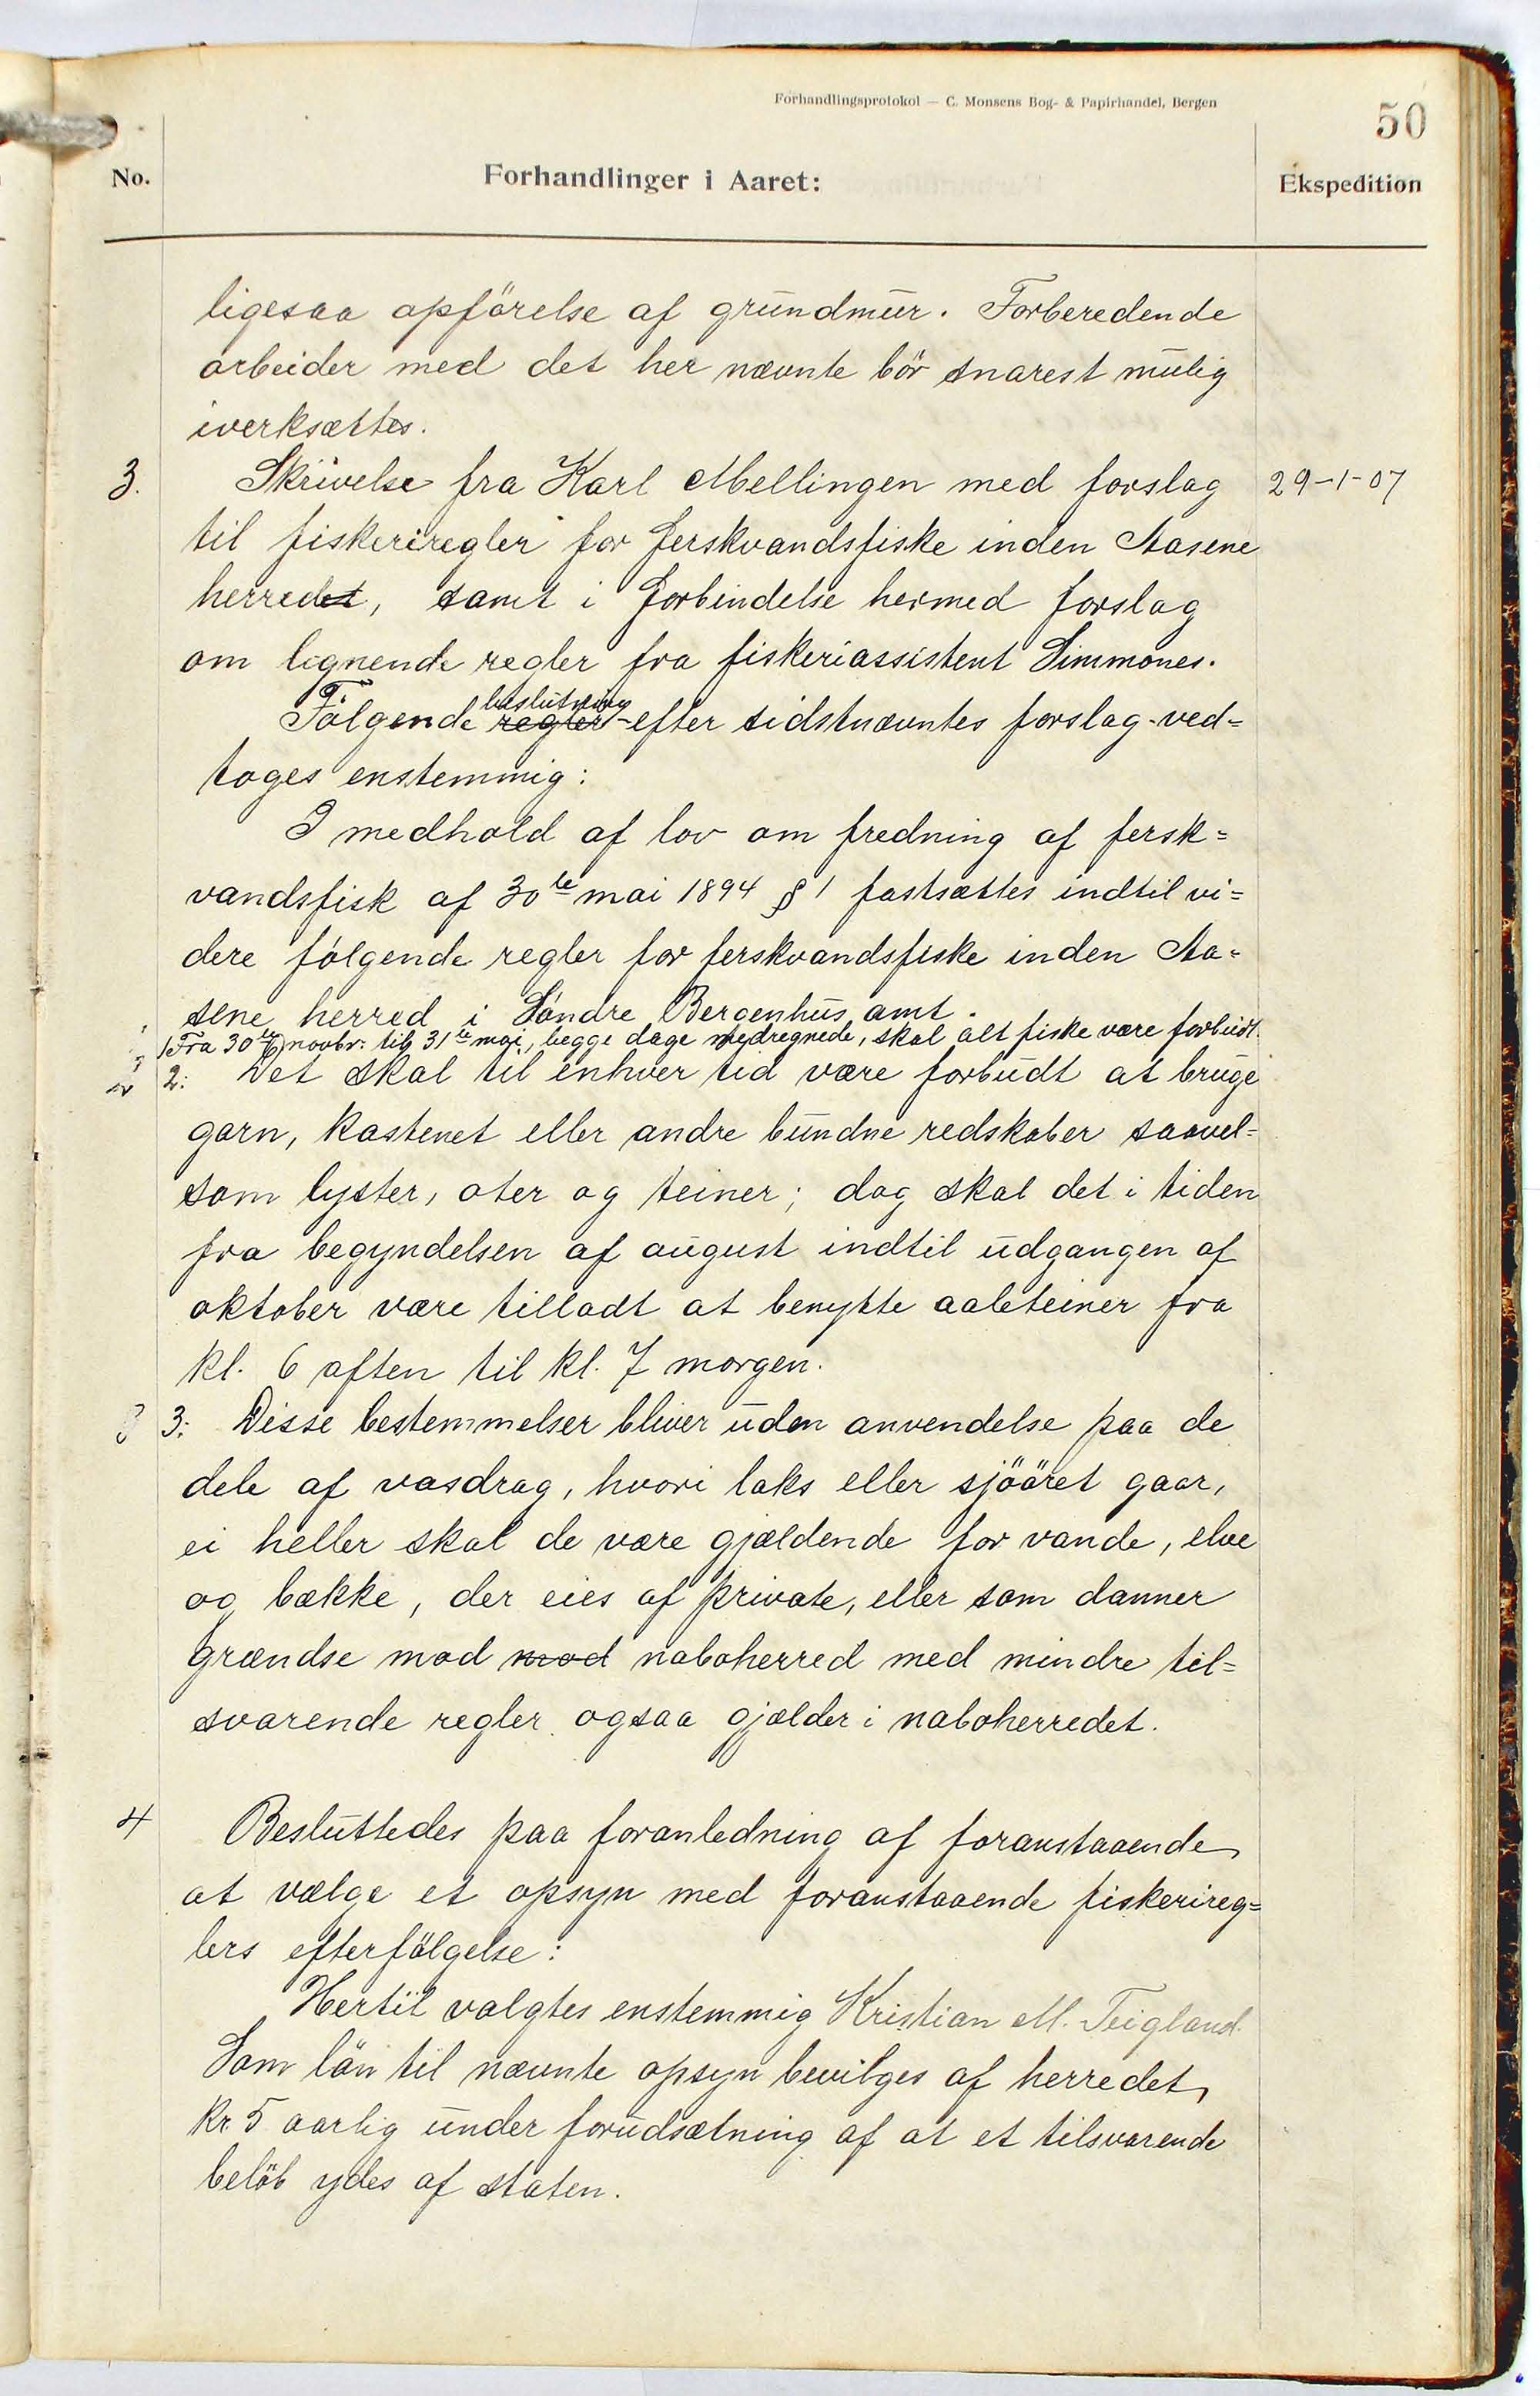 Forhandlingsprotokol — C. Monsens Bog- & Papirhandel, Bergen
50
No.
Forhandlinger i Aaret:
Ekspedition
ligesaa opförelse af grundmur. Forberedende
arbeider med det her nævnte bör snarest mulig
iverksættes.
3. Skrivelse fra Karl Mellingen med forslag 29-1-07
til fiskeriregler for ferskvandsfiske inden Aasene
herredet, samt i forbindelse hermed forslag
om lignende regler fra fiskeriassistent Simmones.
beslutning
Fölgende regler - efter sidstnævntes forslag - ved=
toges enstemmig:
I medhold af lov om fredning af fersk=
vandsfisk af 30te mai 1894 § 1 fastsættes indtil vi=
dere fölgende regler for ferskvandsfiske inden Aa=
sene herred i Söndre Bergenhus amt.
1 Fra 30te novbr. til 31te mai, begge dage medregnede, skal alt fiske være forbudt.
2: Det skal til enhver tid være forbudt at bruge
garn, kastenet eller andre bundne redskaber saavel=
som lyster, oter og teiner; dog skal det i tiden
fra begyndelsen af august indtil udgangen af
oktober være tilladt at benytte aaleteiner fra
kl. 6 aften til kl. 7 morgen.
3 3: Disse bestemmelser bliver uden anvendelse paa de
dele af vasdrag, hvori laks eller sjööret gaar,
ei heller skal de være gjældende for vande, elve
og bække, der eies af private, eller som danner
grændse mod mod naboherred med mindre til=
svarende regler ogsaa gjælder i naboherredet.
4 Besluttedes paa foranledning af foranstaaende
at vælge et opsyn med foranstaaende fiskerireg=
lers efterfölgelse:
Hertil valgtes enstemmig Kristian M. Teigland.
Som lön til nævnte opsyn bevilges af herredet
kr. 5 aarlig under forudsætning af at et tilsvarende
belöb ydes af staten.